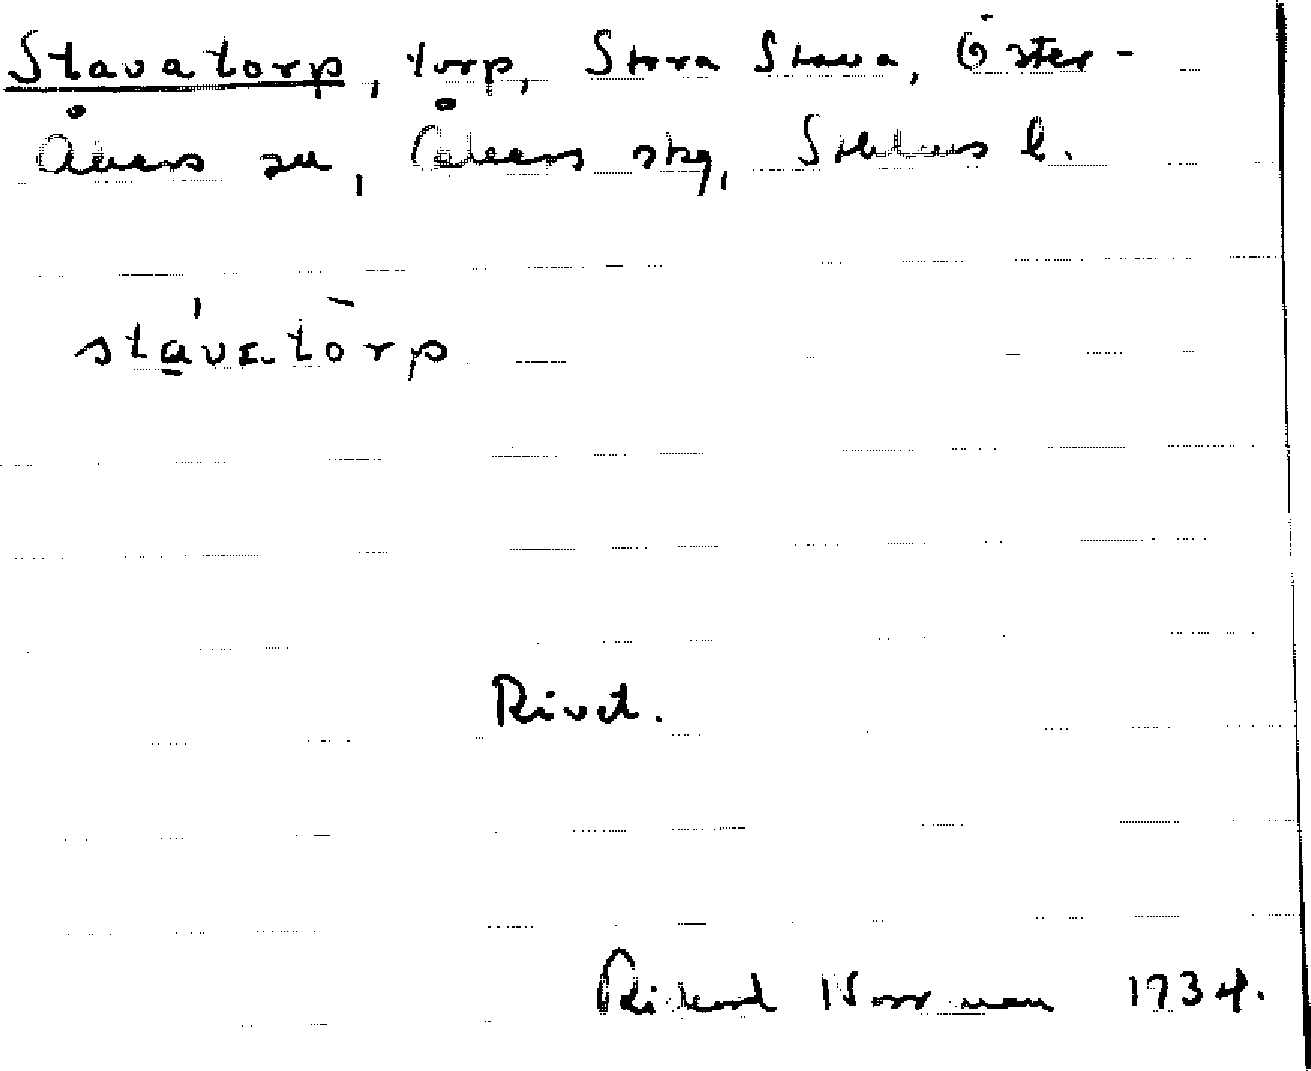 Stavatorp, torp, Stora Stava, Öster-
Åkers sn, Åkers skg, Sthlms l.
stavatòrp
Rivet.
Rikard Norrman 1934.